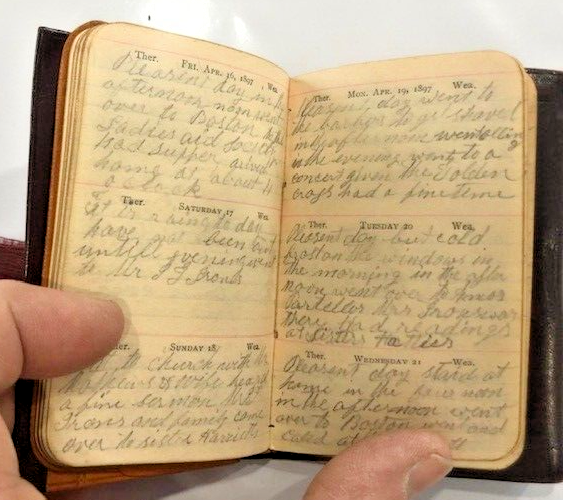 Ther. FRI. APR. 16, 1897 Wea.
Pleasent day in the
afternoon mon went
over to Boston
Ladies aid Society
had supper arived
home at about 11
o clock
Ther. SATURDAY 17 Wea.
It is raining to day
have not been out
until evening went
to Mr Irons
Ther. SUNDAY 18 Wea.
to church with Mr
heard
a fine sermon Mr
Irons and family came
over to sister Harriets
Ther. MON. APR. 19, 1897 Wea.
Pleasent day went to
the barbers to get shaved
in the afternoon went out
in the evening went to a
concert given the Golden
Cross had a fine time
Ther. TUESDAY 20 Wea.
Pleasent day but cold
the windows in
the morning in the after
noon went over to Amos
Mrs Irons was
there had readings
at sisters Hatties
Ther. WEDNESDAY 21 Wea.
Pleasent day staid at
home in the fore noon
in the afternoon went
over to Boston went and
called at